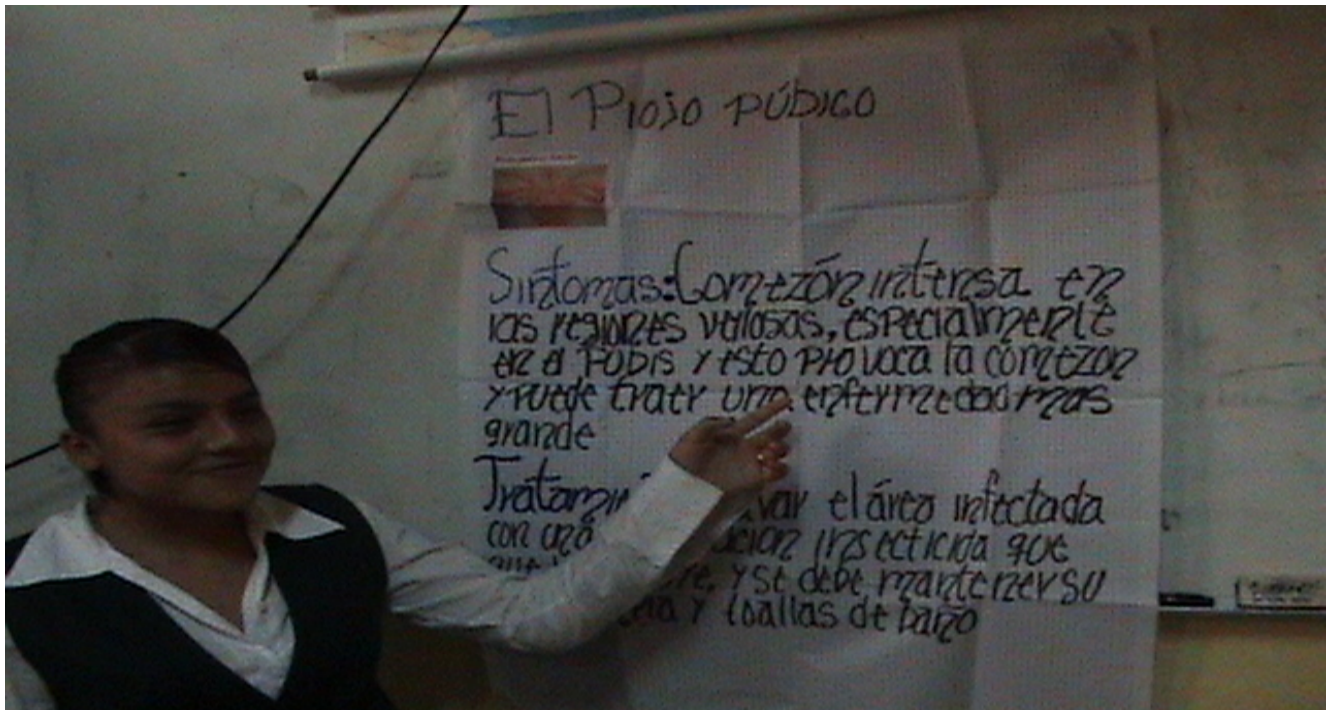 El Piojo PÚBICO
Síntomas: Comezón intensa en
las regiones vellosas, especialmente
en el PUBIS y esto provoca la comezon
y puede traer una enfermedad mas
grande
el área infectada
con una insecticida que
y se debe mantener su
y toallas de baño